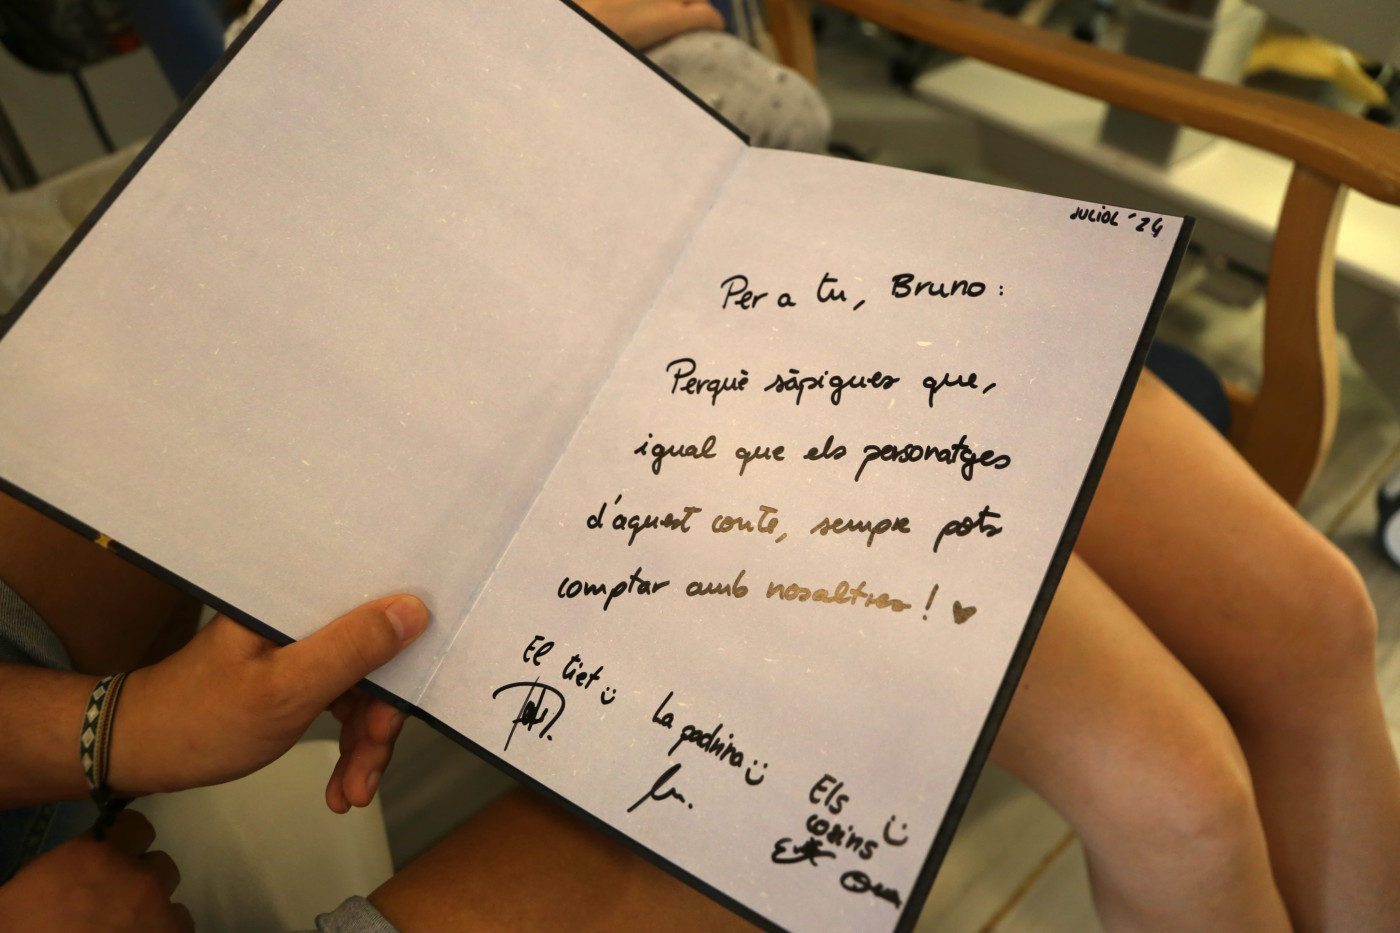 JULIOL '24
Per a tu, Bruno:
Perquè sàpigues que,
igual que els personatges
d'aquest conte, sempre pots
comptar amb nosaltres! ♥
El tiet :)
La padrina :)
Els
cosins :)